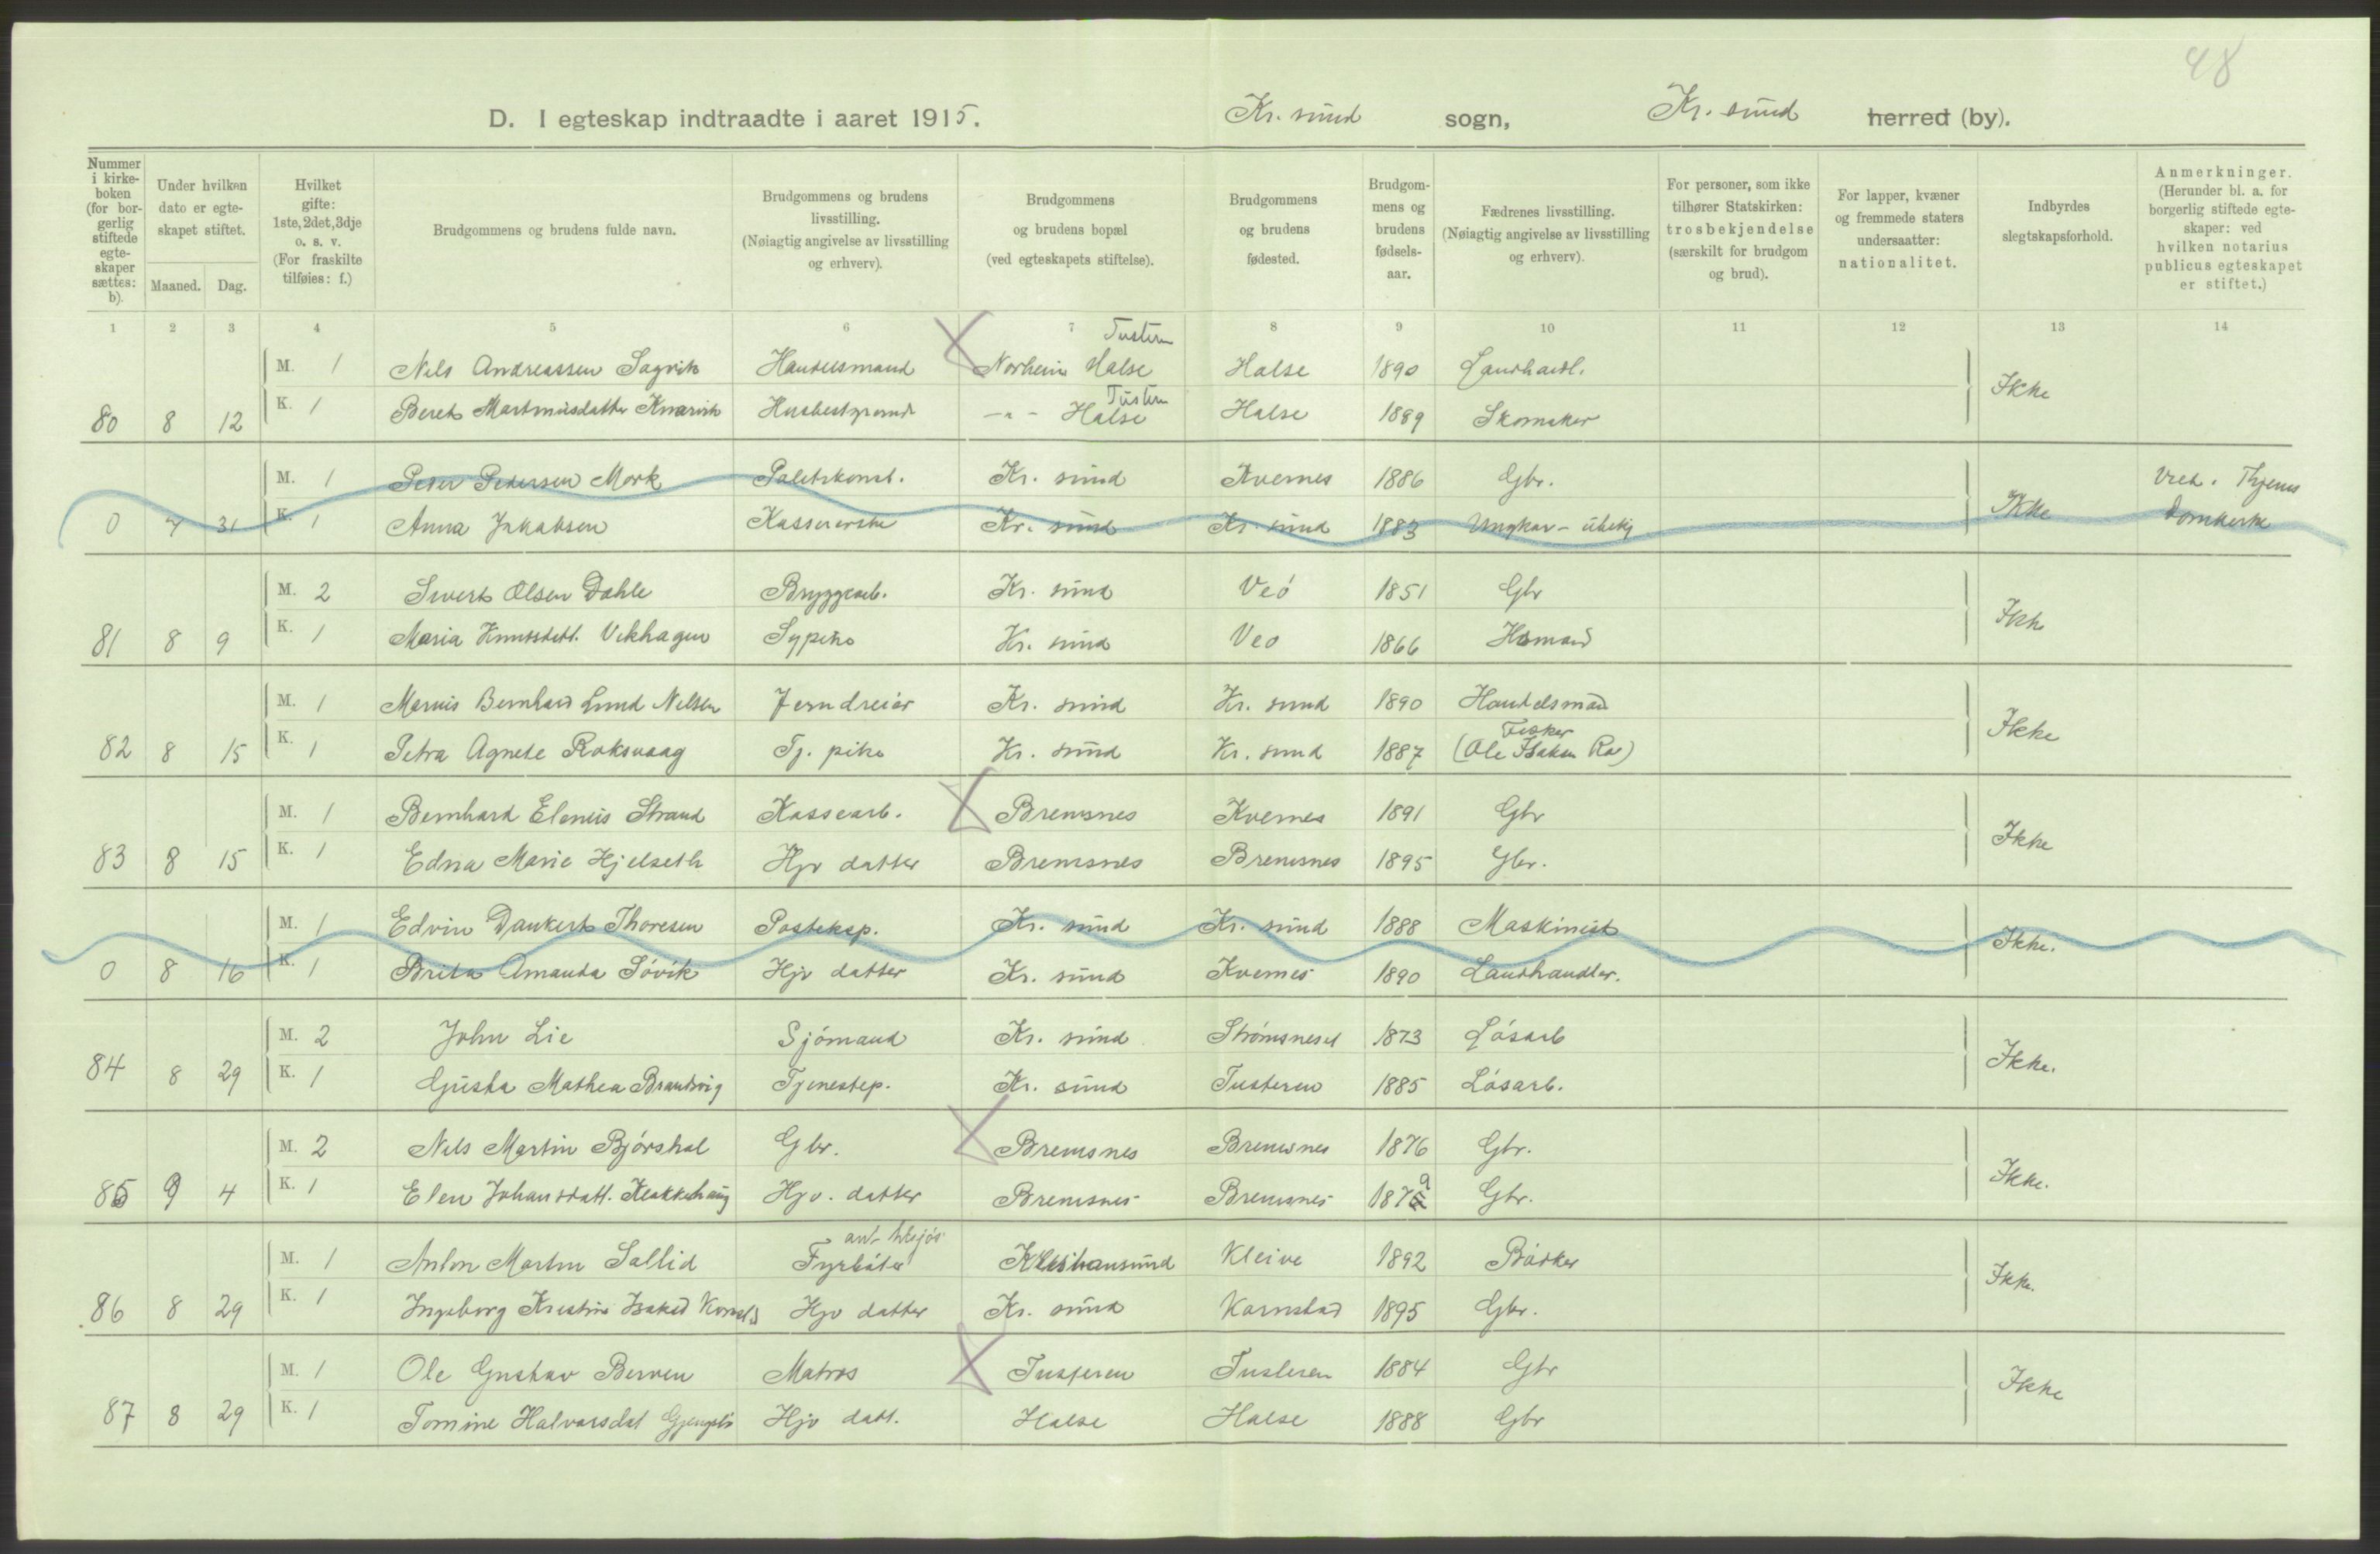 48
D. I egteskap indtraadte i aaret 1915. Kr. sund sogn, Kr. sund herred (by).
Nummer i kirke-boken (for bor-gerlig stiftede egte-skaper sættes: b). Under hvilken dato er egte-skapet stiftet. Maaned. Dag. Hvilket gifte: 1ste, 2det, 3dje o. s. v. (For fraskilte tilføies: f.) Brudgommens og brudens fulde navn. Brudgommens og brudens livsstilling. (Nøiagtig angivelse av livsstilling og erhverv). Brudgommens og brudens bopæl (ved egteskapets stiftelse). Brudgommens og brudens fødested. Brudgom-mens og brudens fødsels-aar. Fædrenes livsstilling. (Nøiagtig angivelse av livsstilling og erhverv). For personer, som ikke tilhører Statskirken: trosbekjendelse (særskilt for brudgom og brud). For lapper, kvæner og fremmede staters undersaatter: nationalitet. Indbyrdes slegtskapsforhold. Anmerkninger. (Herunder bl. a. for borgerlig stiftede egte-skaper: ved hvilken notarius publicus egteskapet er stiftet.)
1 2 3 4 5 6 7 8 9 10 11 12 13 14
Tusteren
M. 1 Nels Andreassen Sagvik Handelsmand Norheim Halse Halse 1890 Landhandl.
Tusteren
80 8 12 K. 1 Beret Martinusdatter Knarvik Husbestyrerinde -"- Halse Halse 1889 Skomaker Ikke
M. 1 Peder Pedersen Mork Politikonst. Kr. sund Kvernes 1886 Gbr. Vred. Thjems
0 7 31 K. 1 Anna Jakobsen Kassererske Kr. sund Kr. sund 1883 Ungkar - ubekj Ikke Domkirke
M. 2 Sivert Olsen Dahle Bryggearb. Kr. sund Veø 1851 Gbr
81 8 9 K. 1 Maria Knutsdatt. Vikhagen Sypike Kr. sund Veø 1866 Hsmand Ikke
M. 1 Marius Bernhard Lund Nelsen Jerndreier Kr. sund Kr. sund 1890 Handelsmand
Fisker
82 8 15 K. 1 Petra Agnete Roksvaag Tj. pike Kr. sund Kr. sund 1887 (Ole Isaksen Ro) Ikke
M. 1 Bernhard Elenius Strand Kassearb. Bremsnes Kvernes 1891 Gbr
83 8 15 K. 1 Edna Marie Hjelseth Hjv datter Bremsnes Bremsnes 1895 Gbr. Ikke
M. 1 Edvin Dankert Thoresen Posteksp. Kr. sund Kr. sund 1888 Maskinist
0 8 16 K. 1 Brita Amanda Søvik Hjv datter Kr. sund Kvernes 1890 Landhandler. Ikke.
M. 2 John Lie Sjømand Kr. sund Strømsneset 1873 Løsarb
84 8 29 K. 1 Gusta Mathea Brandvig Tjenestep. Kr. sund Tusteren 1885 Løsarb. Ikke.
M. 2 Nils Martin Bjørshol Gbr. Bremsnes Bremsnes 1876 Gbr.
85 9 4 K. 1 Elen Johansdatt. Klakkehaug Hjv. datter Bremsnes Bremsnes 1879 Gbr. Ikke.
M. 1 Anton Martin Sallid Fyrbøter Kristiansund Kleive 1892 Bødker
86 8 29 K. 1 Ingeborg Kristine Isaksd Hjv datter Kr. sund Kornstad 1895 Gbr. Ikke.
M. 1 Ole Gustav Berven Matros Tusteren Tusteren 1884 Gbr
87 8 29 K. 1 Tomine Halvorsdat Hjv datt. Halse Halse 1888 Gbr Ikke